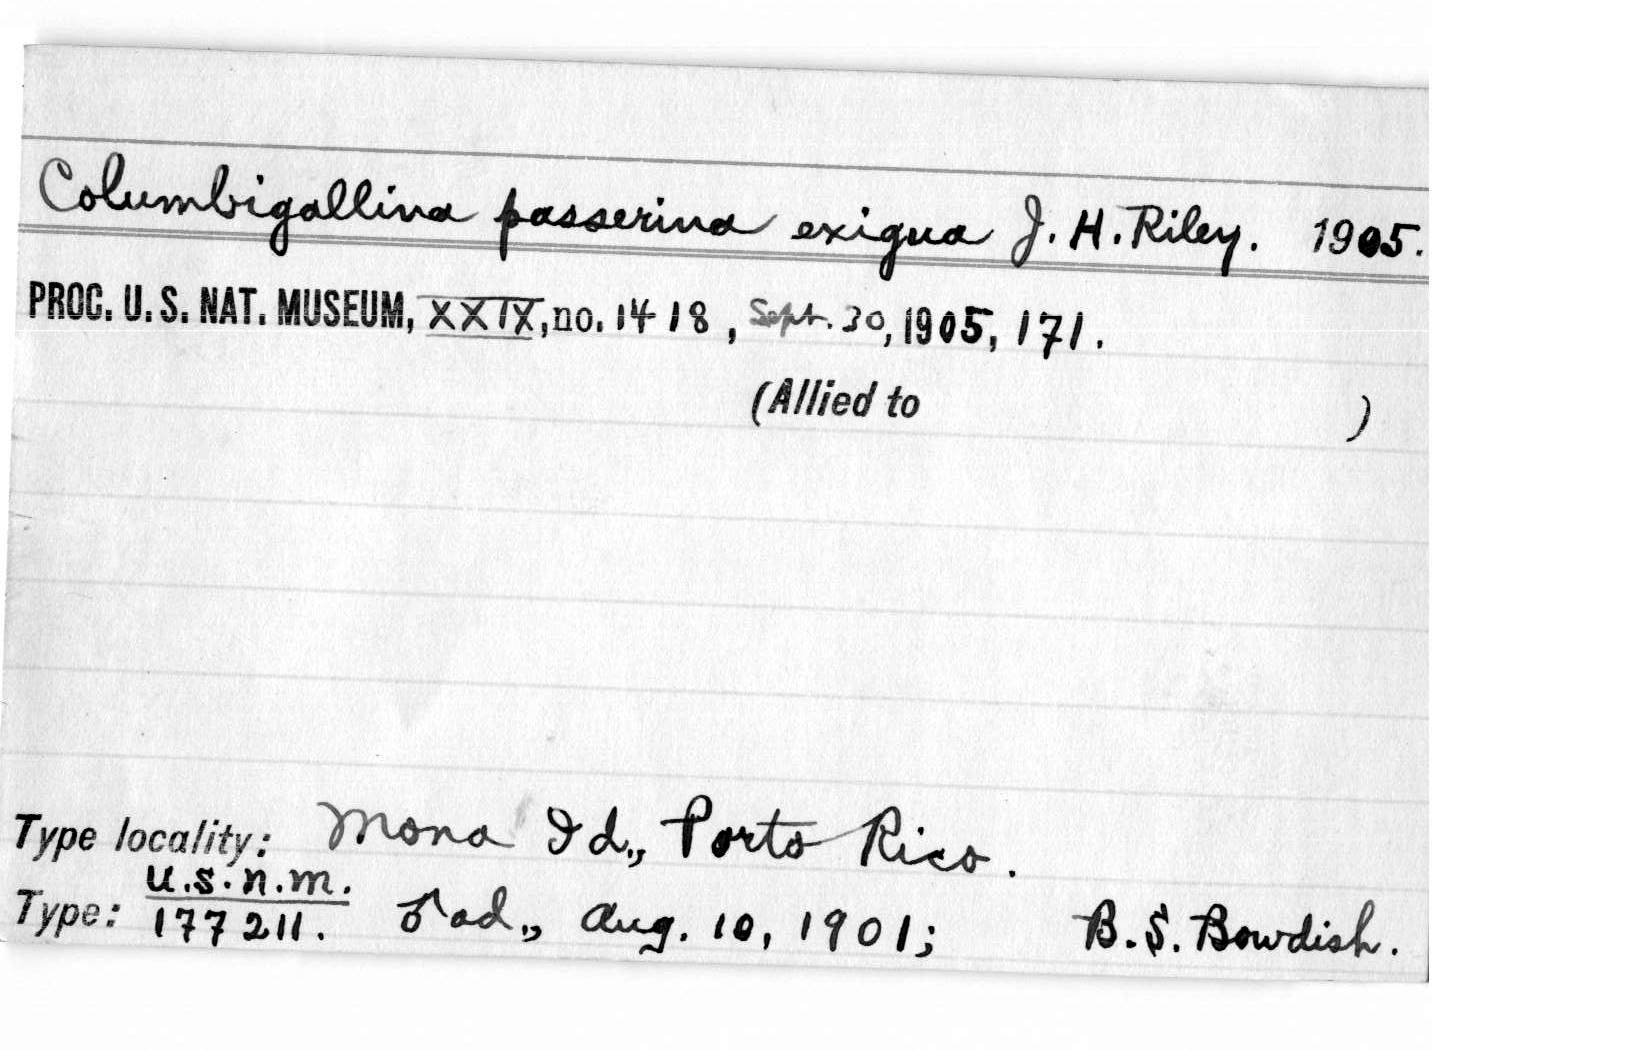 Columbigallina passerina exigua J. H. Riley. 1905.
PROC. U. S. NAT. MUSEUM, XXIX, no. 1418, Sept. 30, 1905, 171.
(Allied to )
Type locality: Mona Id., Porto Rico.
Type: U.S.N.M. 177211. ♂ ad., Aug. 10, 1901; B. S. Bowdish.